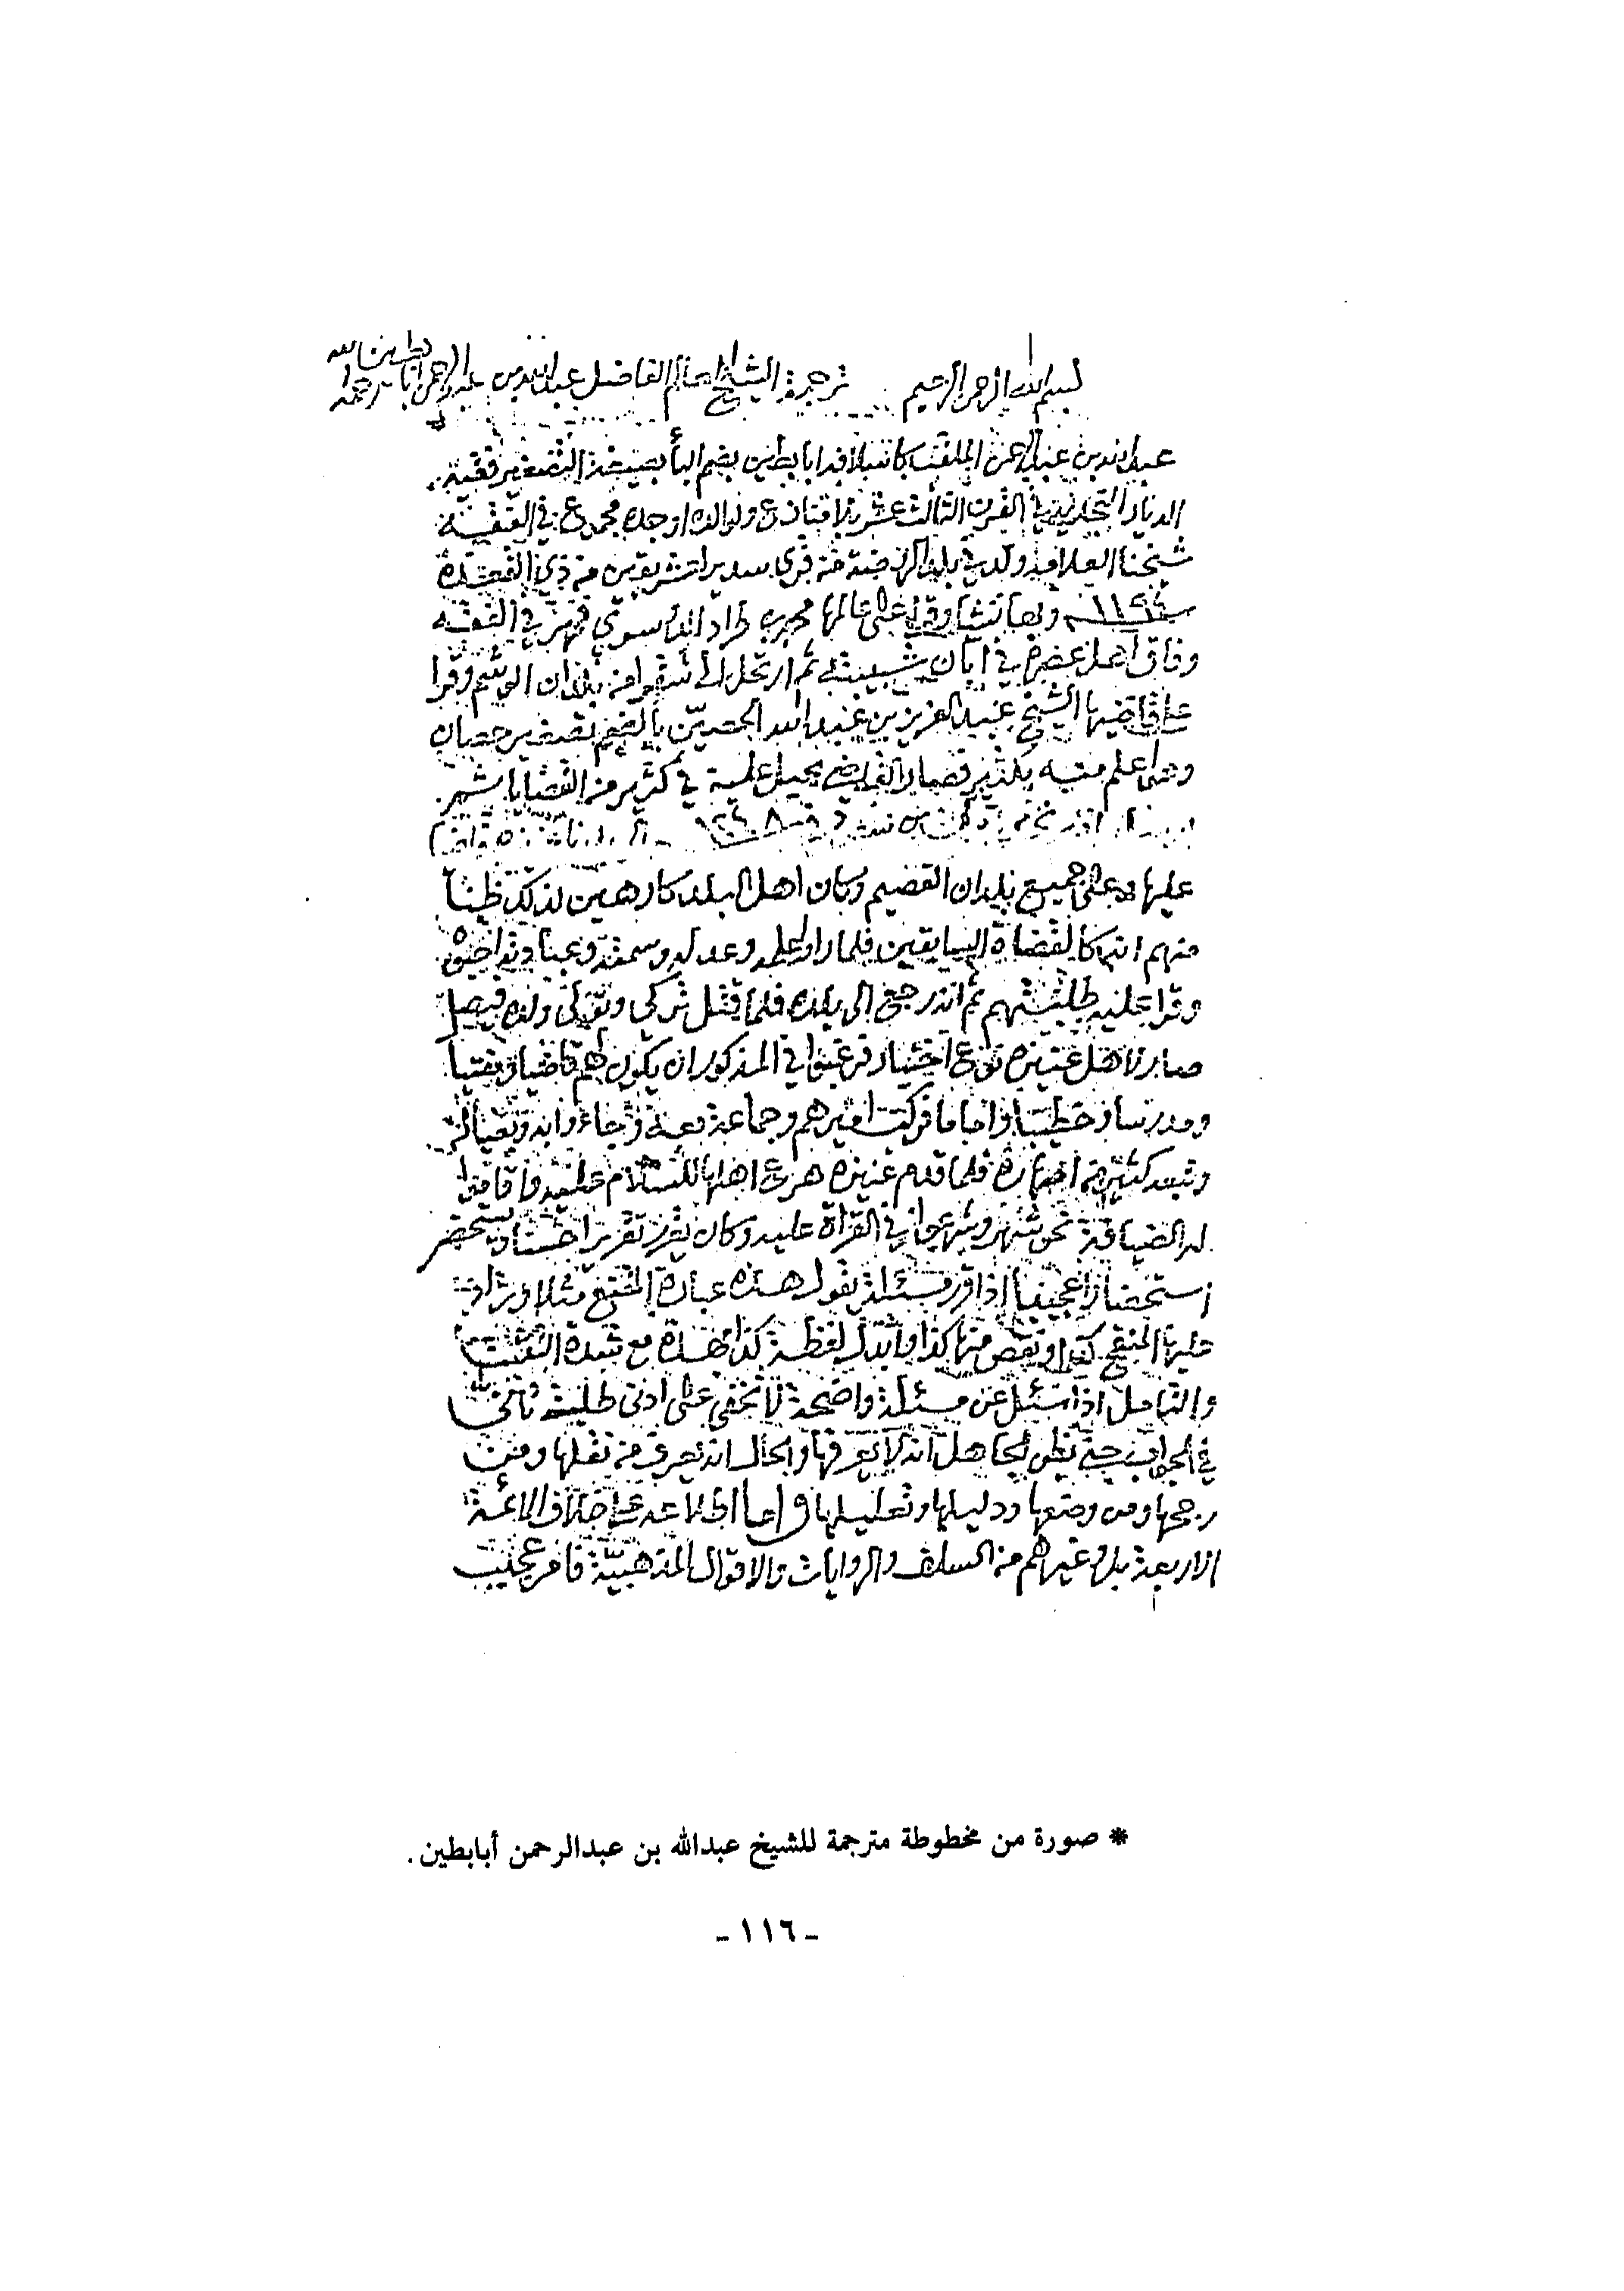 بسم الله الرحمن الرحيم ترجمة الشيخ العالم الفاضل عبدالله بن عبدالرحمن أبابطين رحمه الله
عبدالله بن عبدالرحمن الملقب كأسلافه أبابطين بضم البأ بصيغة التصغير فقيه
الديار النجدية في القرن الثالث عشر بلا منازع ووالده وجده مجموع في الفقه
شيخنا العلامة ولد في بلد الروضة من قرى سدير لعشر بقين من ذي القعدة
سنة ١١٩٤ وبها نشأ وقرأ على عالمها محمد بن طراد الدوسري فمهر في الفقه
وفاق أهل عصره في إبان شبيبته ثم ارتحل إلى شقرا من بلدان الوشم وقرأ
على قاضيها الشيخ عبدالعزيز بن عبدالله الحصين بالضم تصغير حصان
وهو أعلم منه بكثير فصار القاضي يحيل عليه في كثير من القضايا
تركي بن سعود في ١٢٤٨
عليها وعلى جميع بلدان القصيم وكان اهل البلد كارهين لذلك ظناً
منهم انه كالقضاة السابقين فلما راوا علمه وعدله وسمته وعبادته احبوه
وقرا عليه طلبتهم ثم انه رجع الى بلده فلما قتل تركي وتولى ولده فيصل
صار لاهل عنيزه نوع اختيار فرغبوا في المذكور ان يكون لهم قاضيا ومفتيا
ومدرسا وخطيبا واماما فركب اميرهم وجماعة معه وجاءوا به وبعياله
وتبعه كثير من اصهاره فلما قدم عنيزه هرع اهلها للسلام عليه واقاموا
له الضيافة نحو شهر وشرعوا في القرأة عليه وكان يقرر تقريرا حسنا ويستحضر
استحضارا عجيبا اذا قرر مسئلة يقول هذه عبارة المقنع مثلا وزاد
عليها المنقح كذا ونقص منها كذا وابدل لفظة كذا بهذه مع شدة التثبت
والتامل اذا سئل عن مسئلة واضحة لا تخفى على ادنى طلبته تأنى
في الجواب حتى يظن الجاهل انه لا يعرفها والحال انه يعرف من نقلها ومن
رجحها ومن وضعها ودليلها وتعليلها واما اطلاعه على خلاف الائمة
الاربعة بل وغيرهم من السلف والروايات والاقوال المذهبية فامر عجيب
* صورة من مخطوطة مترجمة للشيخ عبدالله بن عبدالرحمن أبابطين.
- ١١٦ -